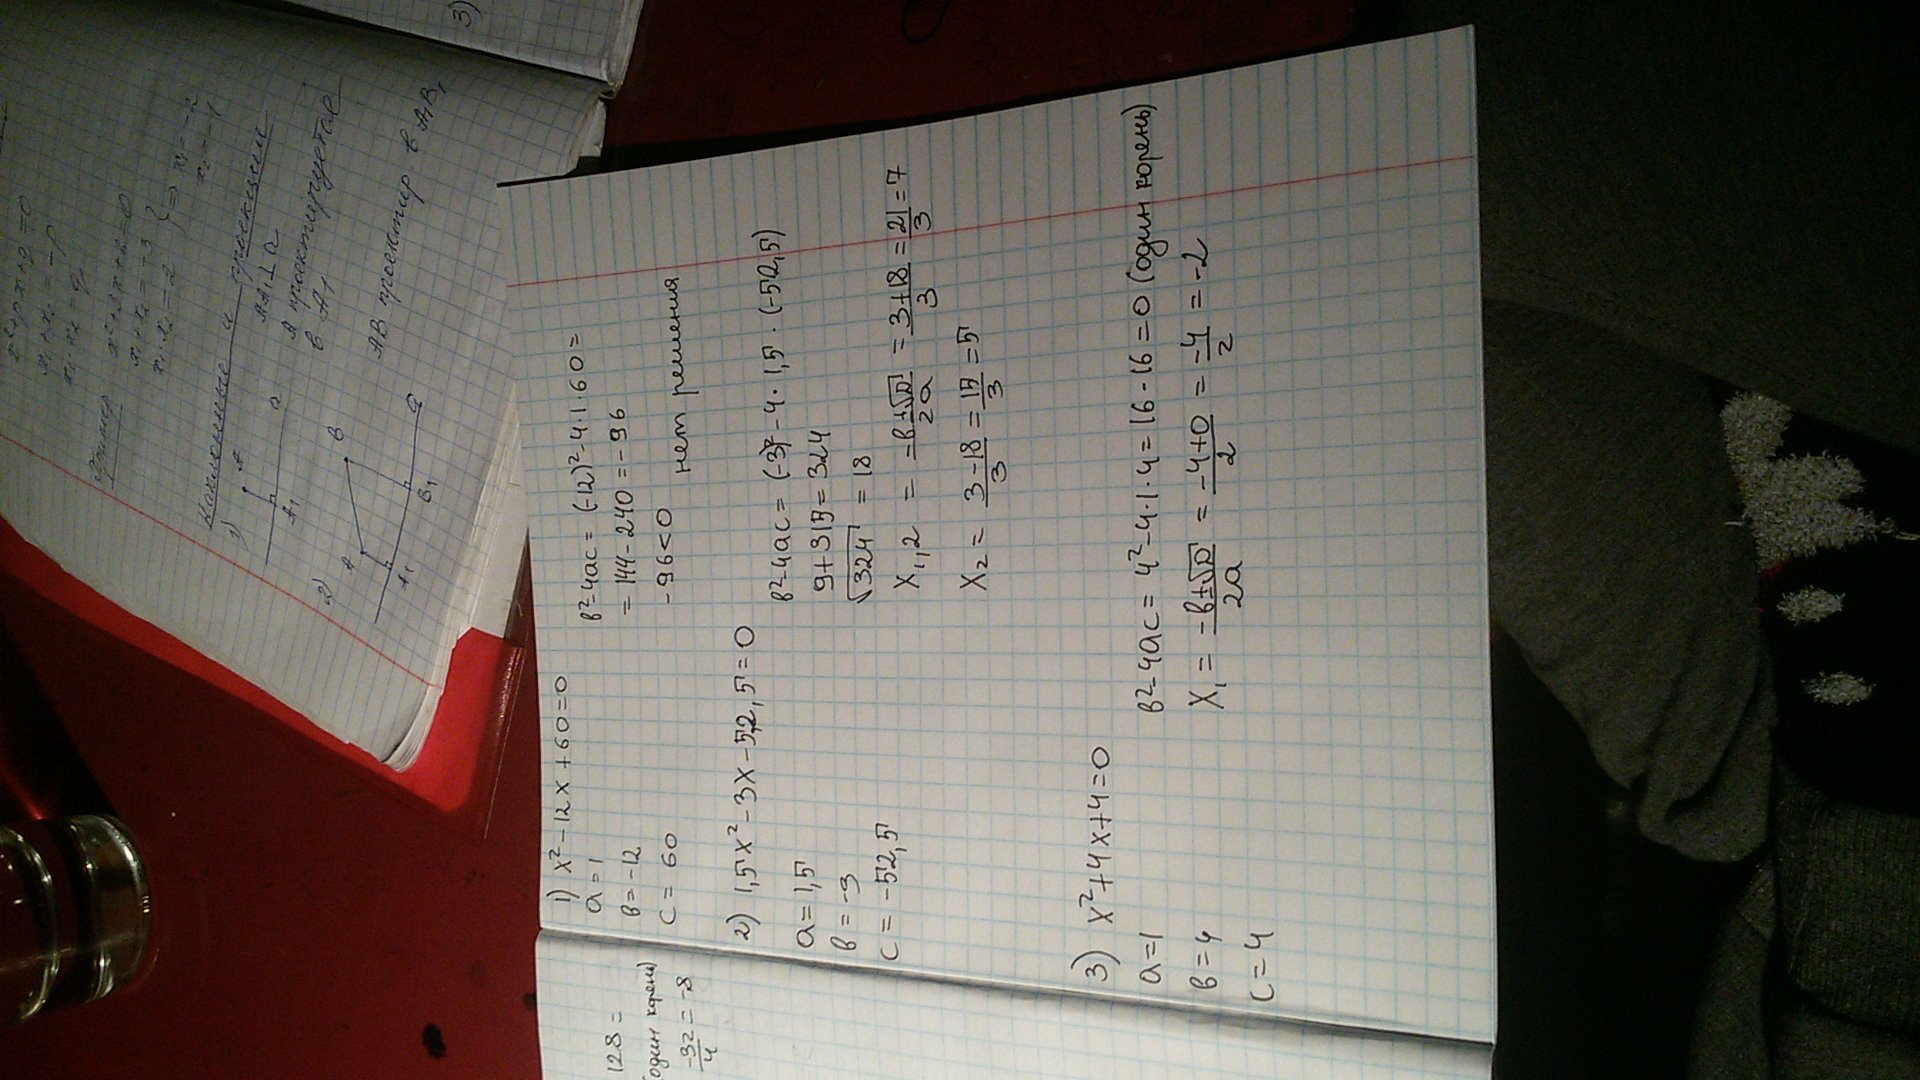 1) x² - 12x + 60 = 0
a = 1
в = -12
c = 60
в² - 4ac = (-12)² - 4·1·60 =
= 144 - 240 = -96
-96 < 0
нет решения
2) 1,5x² - 3x - 52,5 = 0
a = 1,5
в = -3
c = -52,5
в² - 4ac = (-3)² - 4·1,5·(-52,5)
9 + 315 = 324
√324 = 18
x₁,₂ = -в±√D / 2a = 3+18 / 3 = 21/3 = 7
x₂ = 3-18 / 3 = 15/3 = 5
3) x² + 4x + 4 = 0
a = 1
в = 4
c = 4
в² - 4ac = 4² - 4·1·4 = 16 - 16 = 0 (один корень)
x₁ = -в±√D / 2a = -4+0 / 2 = -4/2 = -2
128 =
(один корень)
-32/4 = -8
x² + px + q = 0
x₁ + x₂ = -p
x₁ · x₂ = q
Пример x² + 3x + 2 = 0
x₁ + x₂ = -3
x₁ · x₂ = 2 } => x₁ = -2
x₂ = -1
Наклонные и проекции
1) A
a
A₁
AA₁ ⊥ a
A проектируется
в A1
2) A
B
a
A₁
B₁
AB проектир в A₁B₁
3)